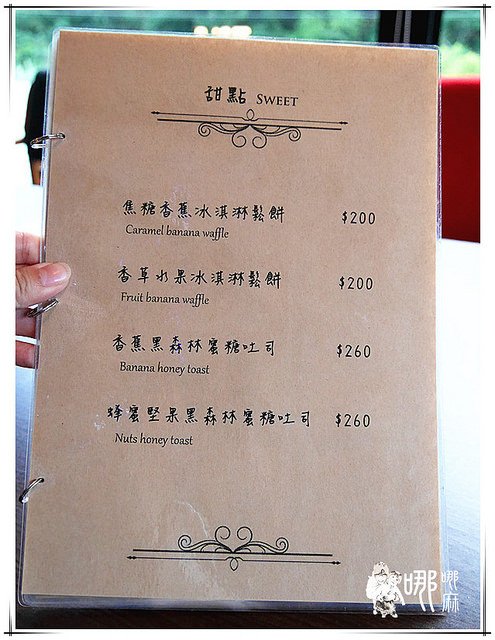 甜點 SWEET
焦糖香蕉冰淇淋鬆餅 $200
Caramel banana waffle
香草水果冰淇淋鬆餅 $200
Fruit banana waffle
香蕉黑森林蜜糖吐司 $260
Banana honey toast
蜂蜜堅果黑森林蜜糖吐司 $260
Nuts honey toast
哪哪麻